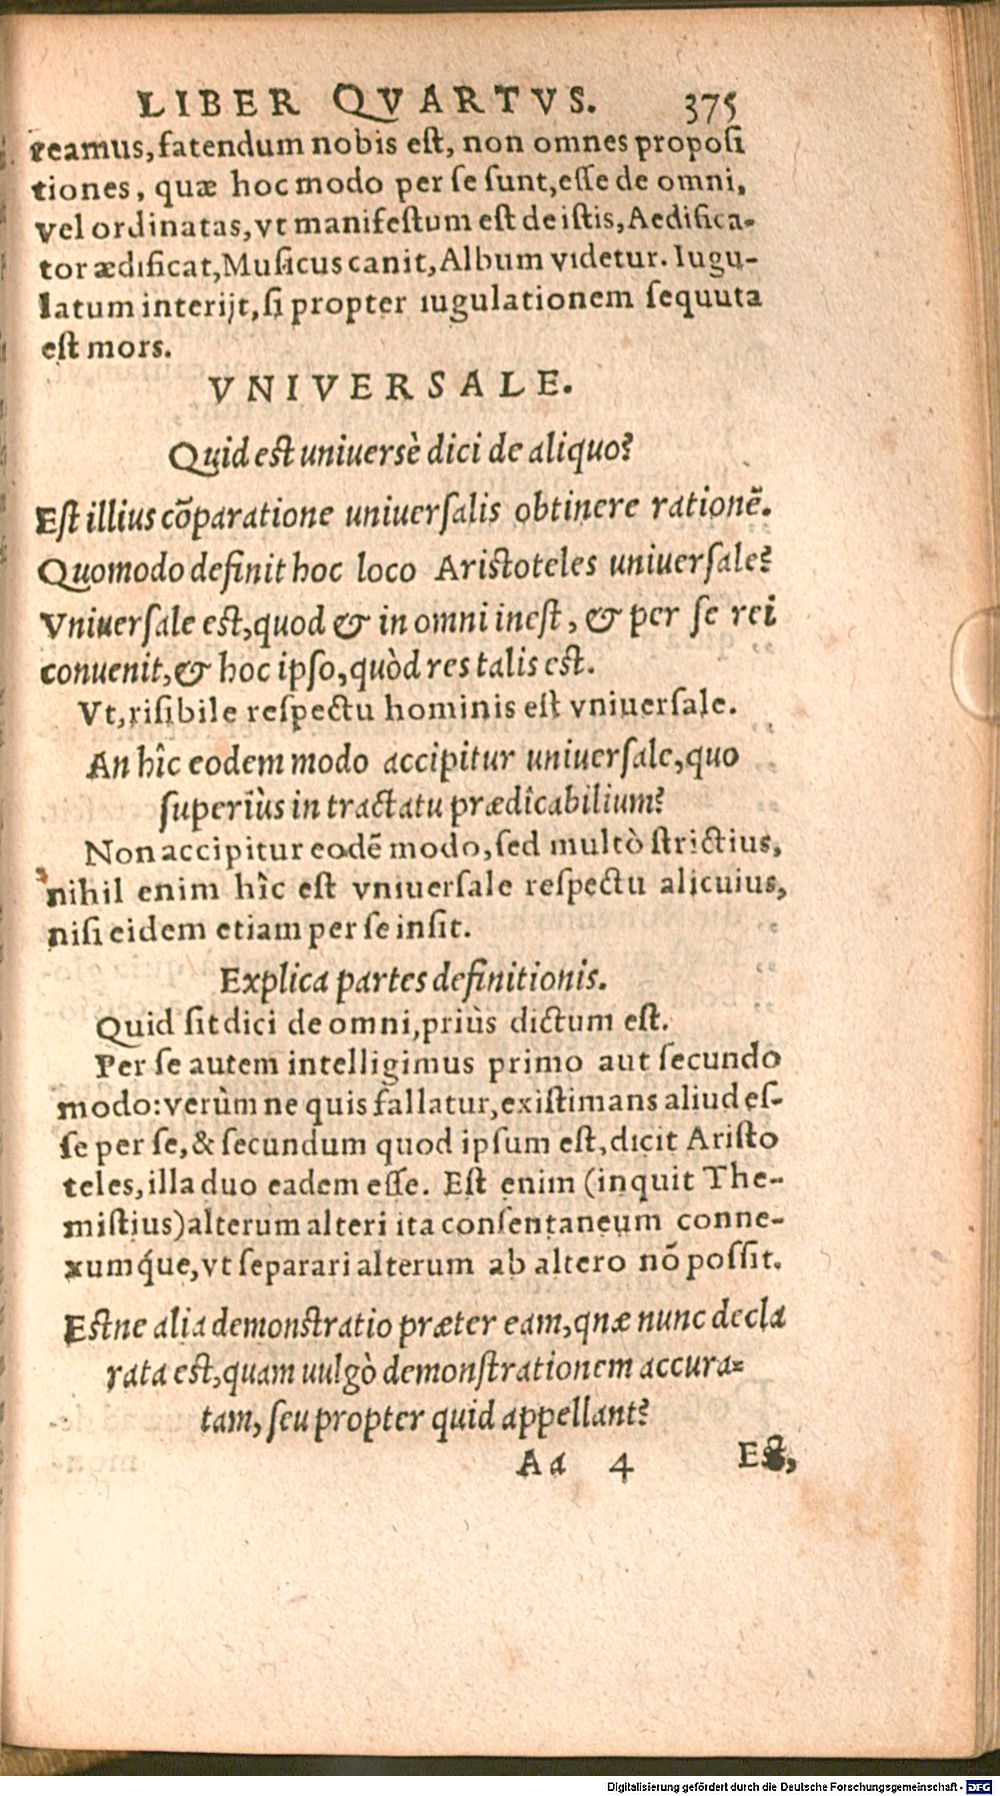 LIBER QVARTVS. 375
reamus, fatendum nobis est, non omnes proposi
tiones, quæ hoc modo per se sunt, esse de omni,
vel ordinatas, vt manifestum est de istis, Aedifica-
tor ædificat, Musicus canit, Album videtur. Iugu-
latum interijt, si propter iugulationem sequuta
est mors.
VNIVERSALE.
Quid est uniuersè dici de aliquo?
Est illius cõparatione uniuersalis obtinere rationẽ.
Quomodo definit hoc loco Aristoteles uniuersale?
Vniuersale est, quod & in omni inest, & per se rei
conuenit, & hoc ipso, quòd res talis est.
Vt, risibile respectu hominis est vniuersale.
An hîc eodem modo accipitur uniuersale, quo
superiùs in tractatu prædicabilium?
Non accipitur eodẽ modo, sed multò strictius,
nihil enim hîc est vniuersale respectu alicuius,
nisi eidem etiam per se insit.
Explica partes definitionis.
Quid sit dici de omni, priùs dictum est.
Per se autem intelligimus primo aut secundo
modo: verùm ne quis fallatur, existimans aliud es-
se per se, & secundum quod ipsum est, dicit Aristo
teles, illa duo eadem esse. Est enim (inquit The-
mistius) alterum alteri ita consentaneum conne-
xumq́ue, vt separari alterum ab altero nõ possit.
Estne alia demonstratio præter eam, qnæ nunc decla
rata est, quam uulgò demonstrationem accura-
tam, seu propter quid appellant?
Aa 4 Est,
Digitalisierung gefördert durch die Deutsche Forschungsgemeinschaft - DFG